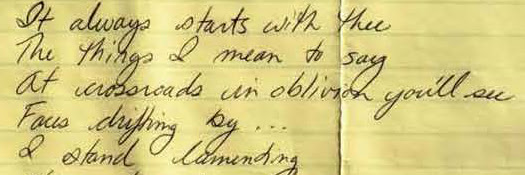 It always starts with thee
The things I mean to say
At crossroads in oblivion you'll see
Faces drifting by...
I stand lamenting